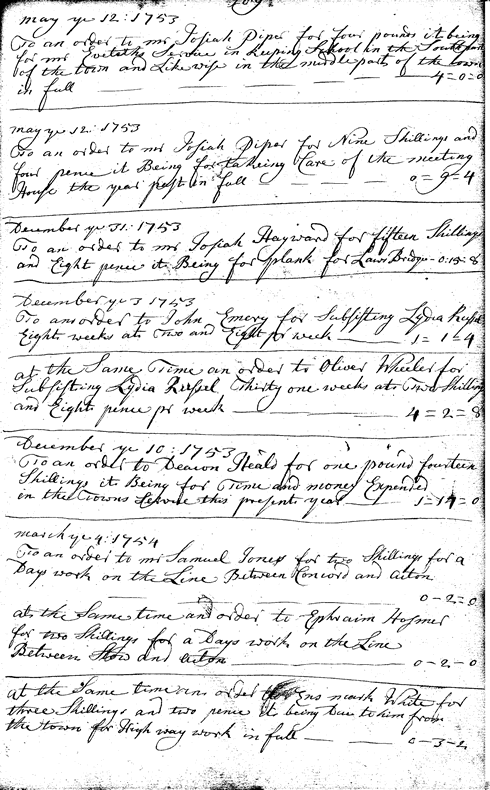 may ye 12: 1753
To an order to mr Josiah Piper for four pounds it being
for mr Eveleths Service in keeping School in the South part
of the town and Likewise in the middle part of the town
in full 4=0=0
may ye 12: 1753
To an order to mr Josiah Piper for Nine Shillings and
four pence it Being for takeing Care of the meeting
House the year past in full 0=9=4
December ye 31: 1753
To an order to mr Josiah Hayward for fifteen Shillings
and Eight pence it Being for plank for Laws Bridge 0:15=8
December ye 3 1753
To an order to John Emery for Subsisting Lydia Russel
Eight weeks at Two and Eight pr week 1=1=4
at the Same Time an order to Oliver Wheeler for
Subsisting Lydia Russel Thirty one weeks at Two Shilling
and Eight pence pr week 4=2=8
December ye 10: 1753
To an order to Deacon Heald for one pound fourteen
Shillings it Being for Time and money Expended
in the Towns Service this present year 1=14=0
march ye 4: 1754
To an order to mr Samuel Jones for two Shillings for a
Days work on the Line Between Concord and acton
0-2=0
at the Same time and order to Ephraim Hosmer
for two Shillings for a Days work on the Line
Between Stow and acton 0-2-0
at the Same time an order to Ens mark White for
three Shillings and two pence it being Due to him from
the town for High way work in full 0-3-2